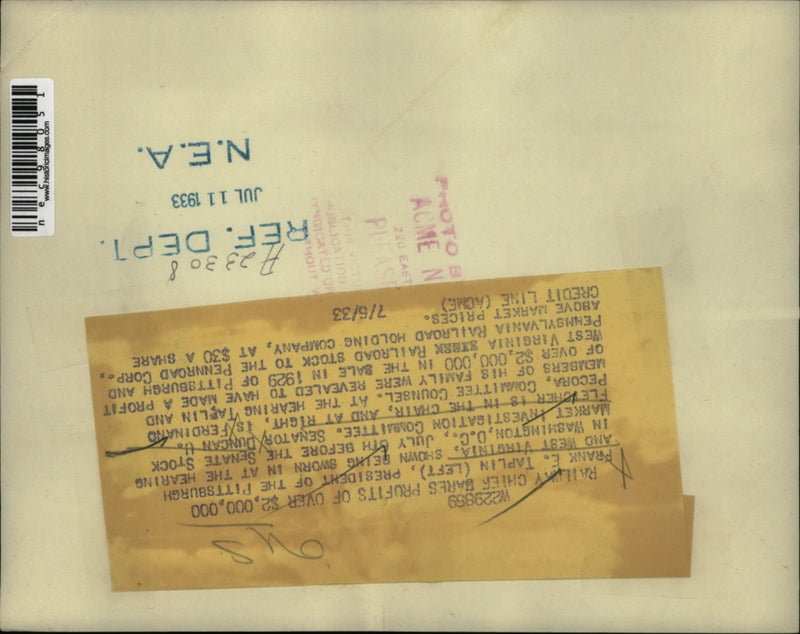 W229859
RAILWAY CHIEF BARES PROFITS OF OVER $2,000,000
FRANK E. TAPLIN (LEFT), PRESIDENT OF THE PITTSBURGH
AND WEST VIRGINIA, SHOWN BEING SWORN IN AT THE HEARING
IN WASHINGTON, D.C., JULY 6TH BEFORE THE SENATE STOCK
MARKET INVESTIGATION COMMITTEE. SENATOR DUNCAN U.
FLETCHER IS IN THE CHAIR, AND AT RIGHT, IS FERDINAND
PECORA, COMMITTEE COUNSEL. AT THE HEARING TAPLIN AND
MEMBERS OF HIS FAMILY WERE REVEALED TO HAVE MADE A PROFIT
OF OVER $2,000,000 IN THE SALE IN 1929 OF PITTSBURGH AND
WEST VIRGINIA RAILROAD STOCK TO THE PENNROAD CORP.,
PENNSYLVANIA RAILROAD HOLDING COMPANY, AT $30 A SHARE
ABOVE MARKET PRICES.
CREDIT LINE (ACME) 7/6/33
A 23308
REF. DEPT.
JUL 11 1933
N.E.A.
PHOTO B
ACME N
220 EAST
PLEAS
THIS
PUBLICATION
SYNDICATED OR
WITHOUT
nec98051
www.historicimages.com